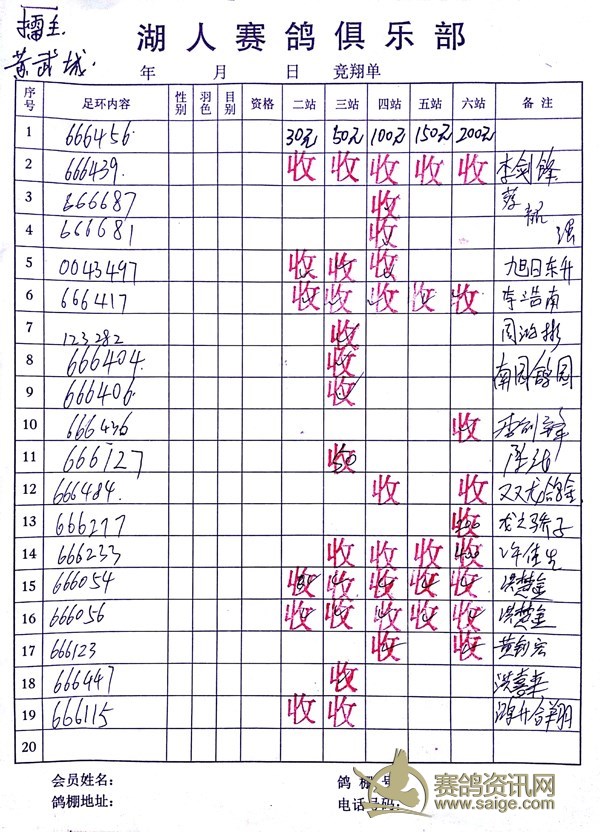 擂主
黄武城.
湖人赛鸽俱乐部
年 月 日 竞翔单
序号 足环内容 性别 羽色 目别 资格 二站 三站 四站 五站 六站 备注
1 666456 30元 50元 100元 150元 200元
2 666439. 收 收 收 收 收 李剑锋
3 666687 收 蔡
4 666681 收 强
5 0043497 收 收 收 旭日东升
6 666417 收 收 收 收 收 李浩南
7 123282 收 周
8 666404. 收 南园鸽园
9 666406. 收
10 666436 收 李剑锋
11 666127 收
12 666484. 收 收 双龙鸽舍
13 666277 收 龙之骄子
14 666233 收 收 收 收
15 666054 收 收 收 收 收 洪楚金
16 666056 收 收 收 收 收 洪楚金
17 666123 收 收 黄钊宏
18 666447 收 洪喜来
19 666115 收 收
20
会员姓名: 鸽棚号
鸽棚地址: 电话号码:
赛鸽资讯网
www.saige.com